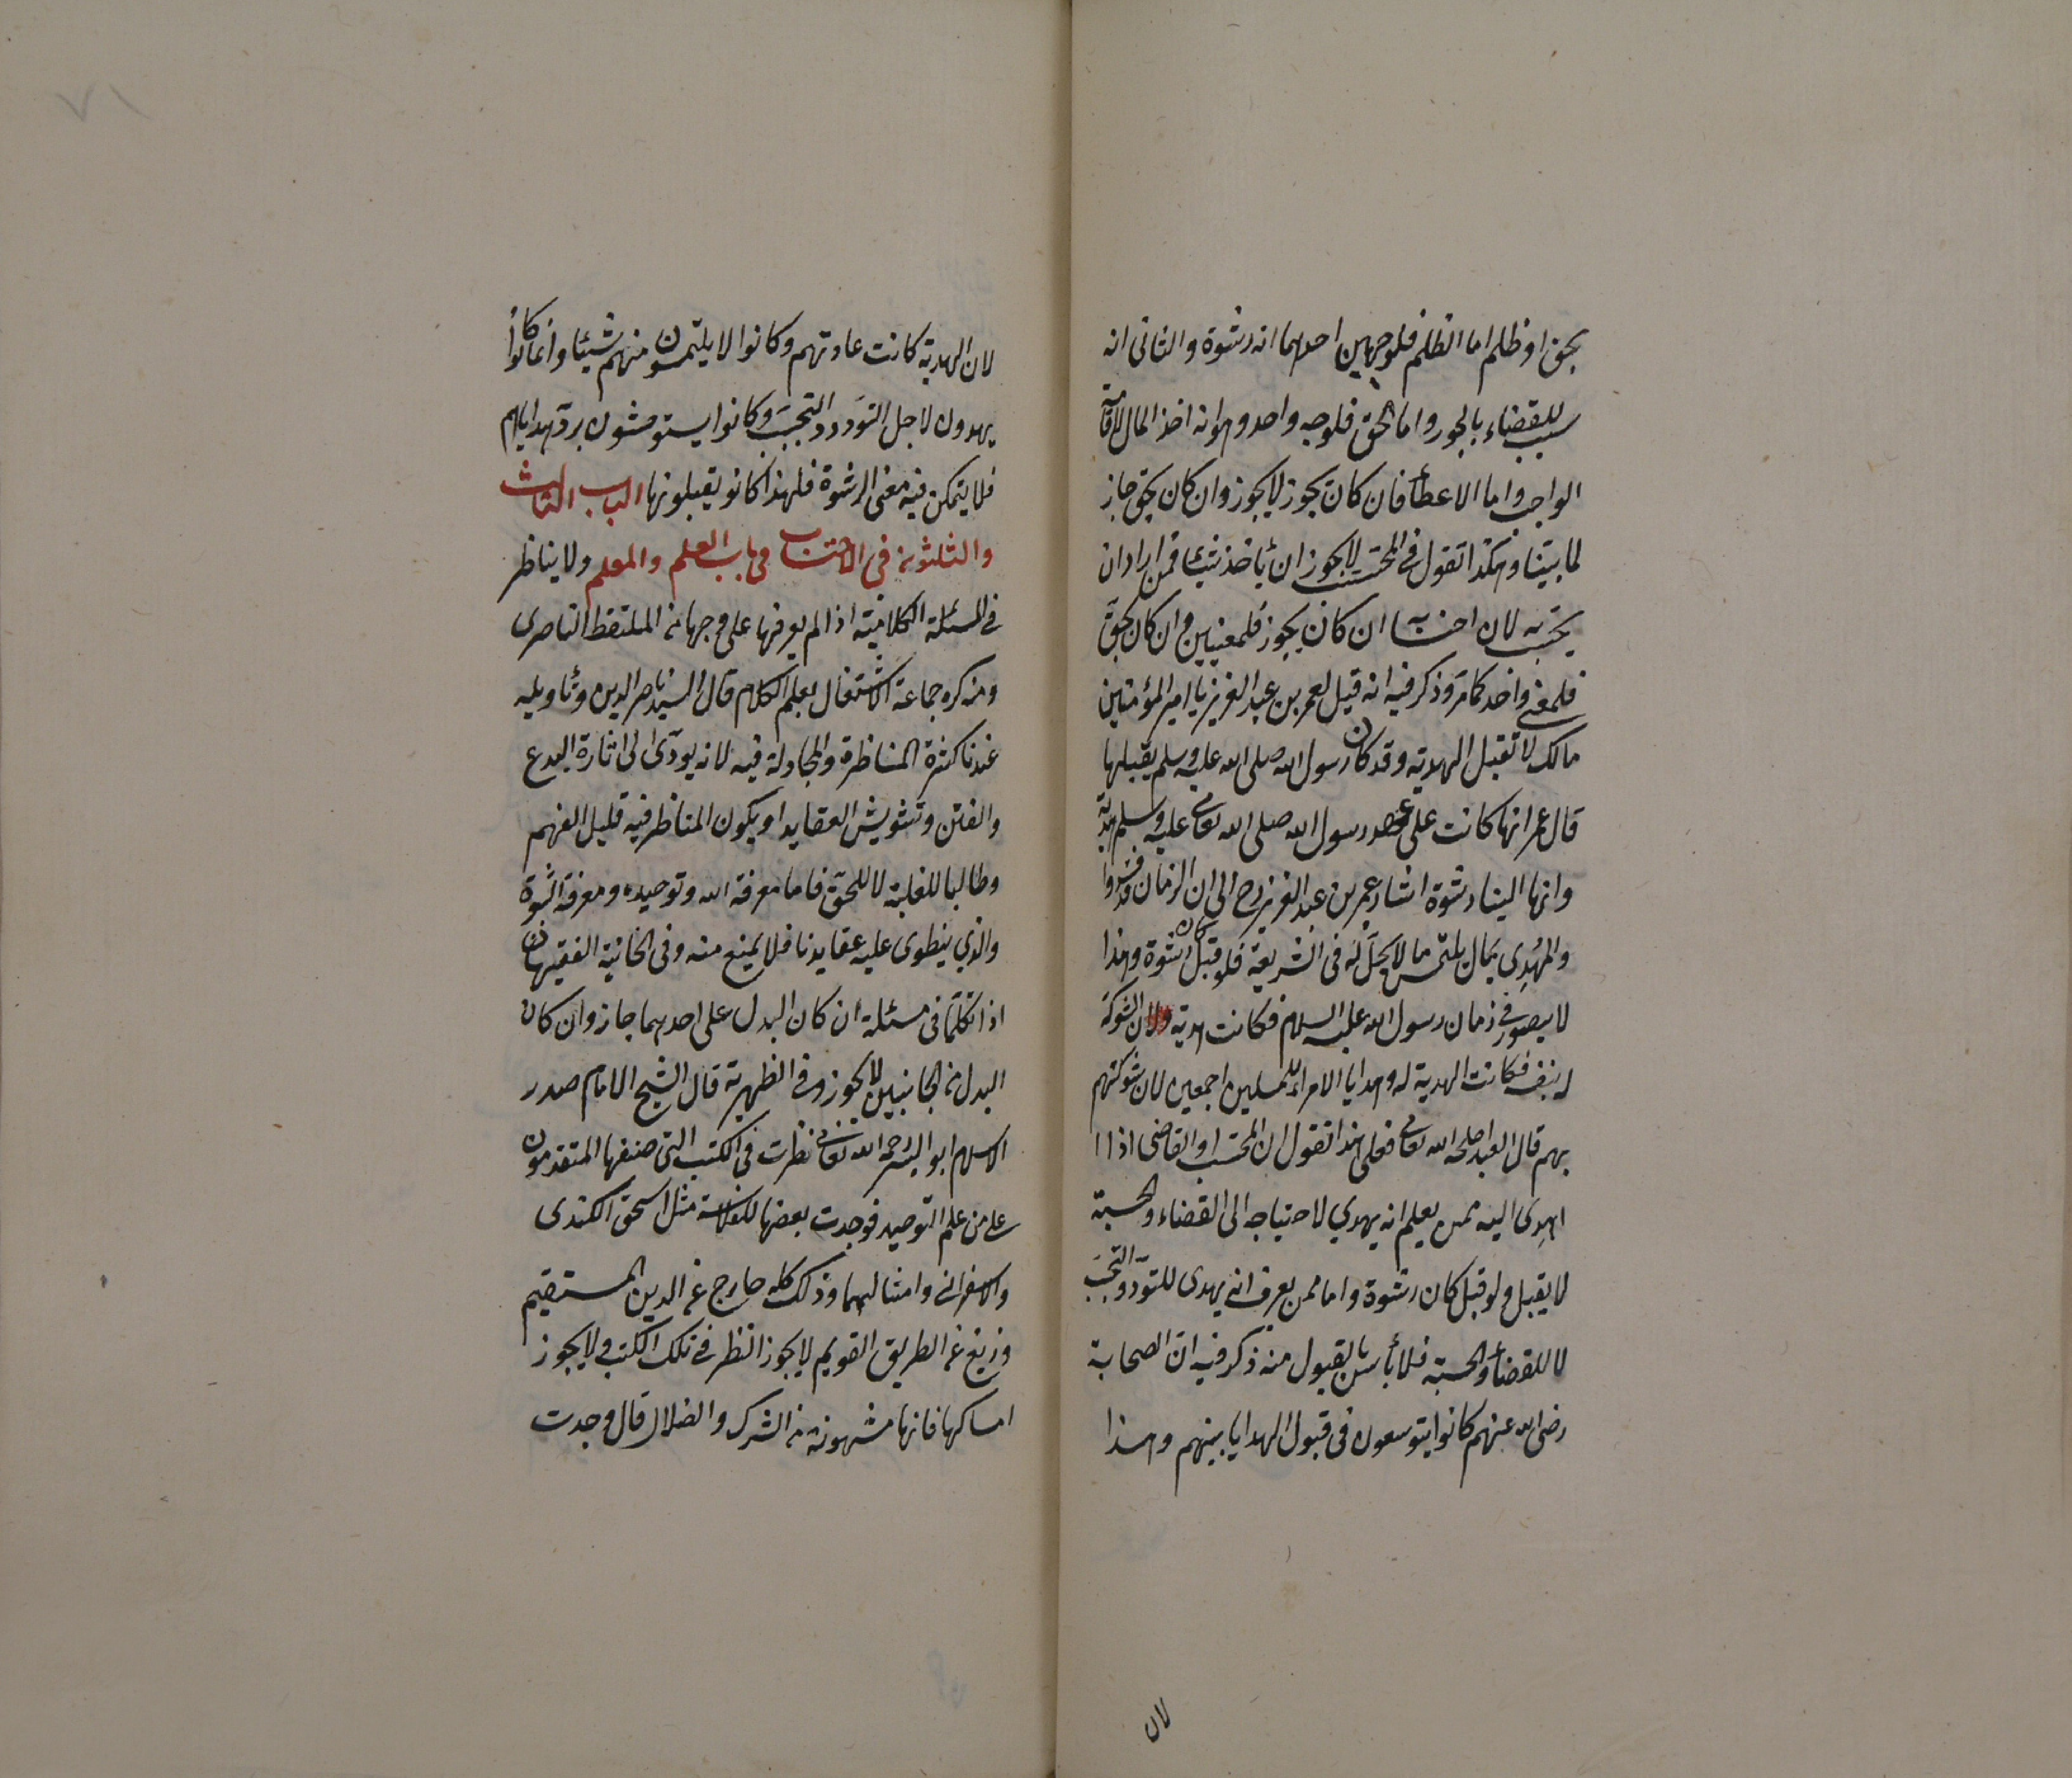 بحق او ظلم اما الظلم فلوجهين احدهما انه رشوة والثانى انه
سبب للقضاء بالجور واما الحق فلوجه واحد وهو انه اخذ المال لاقامة
الواجب واما الاعطأ فان كان بجور لا يجوز وان كان بحق جاز
لما بيّنا وهكذا نقول فى المحتسب لا يجوز ان يأخذ شيئا فمن اراد ان
يحتسب لان احتسابه ان كان بجور فلمعنيين وان كان بحق
فلمعنى واحد كما مر وذكر فيه انه قيل لعمر بن عبد العزيز يا امير المؤمنين
مالك لا تقبل الهدية وقد كان رسول الله صلى الله عليه وسلم يقبلها
قال عمر انها كانت على عهد رسول الله صلى الله تعالى عليه وسلم هدية
وانها الينا رشوة اشار عمر بن عبد العزيز رح الى ان الزمان قد فسدوا
والمهُدِي بمال يلتمس ما لا يحلّ له فى الشريعة فلو قبل كان رشوة وهذا
لا يتصور فى زمان رسول الله عليه السلام فكانت هدية ولان الشوكة
له بنفسه فكانت الهدية له وهدايا الامراء للمسلمين اجمعين لان شوكتهم
بهم قال العبد اصلحه الله تعالى فعلى هذا نقول ان المحتسب او القاضى اذا ا
اهدِى اليه ممن يعلم انه يهدي لاحتياجه الى القضاء والحسبة
لا يقبل ولو قبل كان رشوة واما ممن يعرف انه يهدى للتودّد والتحبّب
لا للقضأ والحسبة فلا بأس بالقبول منه ذكر فيه انّ الصحابة
رضى الله عنهم كانوا يتوسعون فى قبول الهدايا بينهم وهذا
لان
لان الهدية كانت عادتهم وكانوا لا يلتمسون منهم شيئا وانما كانوا
يهدون لاجل التوَدد والتحبّب وكانوا يستوحشون بردّ هداياهم
فلا يتمكن فيه معنى الرشوة فلهذا كانو يقبلونها الباب الثالث
والثلثون فى الاحتساب فى باب العلم والمعلم ولا يناظر
فى المسئلة الكلامية اذا لم يعرفها على وجهها من الملتقط الناصرى
ومنه كره جماعة الاشتغال بعلم الكلام قال السيد ناصر الدين وتأويله
عندنا كثرة المناظرة والمجادلة فيه لانه يودّى الى اثارة البدع
والفتن وتشويش العقايد او يكون المناظر فيه قليل الفهم
وطالبا للغلبة لا للحقّ فاما معرفة الله وتوحيده ومعرفة النبوة
والذي ينطوى عليه عقايدنا فلا يمنع منه وفى الخانية الفقيهان
اذا تكلّما فى مسئلة ان كان البدل على احدهما جاز وان كان
البدل من الجانبين لا يجوز وفى الظهيرية قال الشيخ الامام صدر
الاسلام ابو اليسر رحمه الله تعالى نظرت فى الكتب التى صنفها المتقدمون
على من علم التوحيد فوجدت بعضها للفلاسفة مثل اسحق الكندى
والاسفرانى وامثالهما وذلك كله خارج عن الدين المستقيم
وزيغ عن الطريق القويم لا يجوز النظر فى تلك الكتب ولا يجوز
امساكها فانها مشحونة من الشرك والضلال قال وجدت